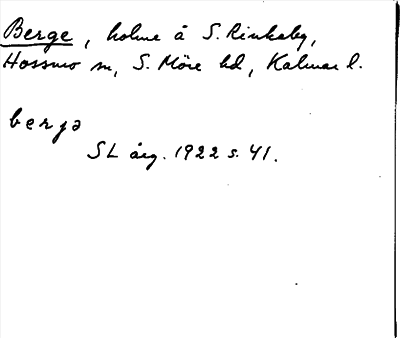 Berge, holme å S. Rinkaby,
Hossmo sn, S. Möre hd, Kalmar l.
berjə
SL årg. 1922 s. 41.